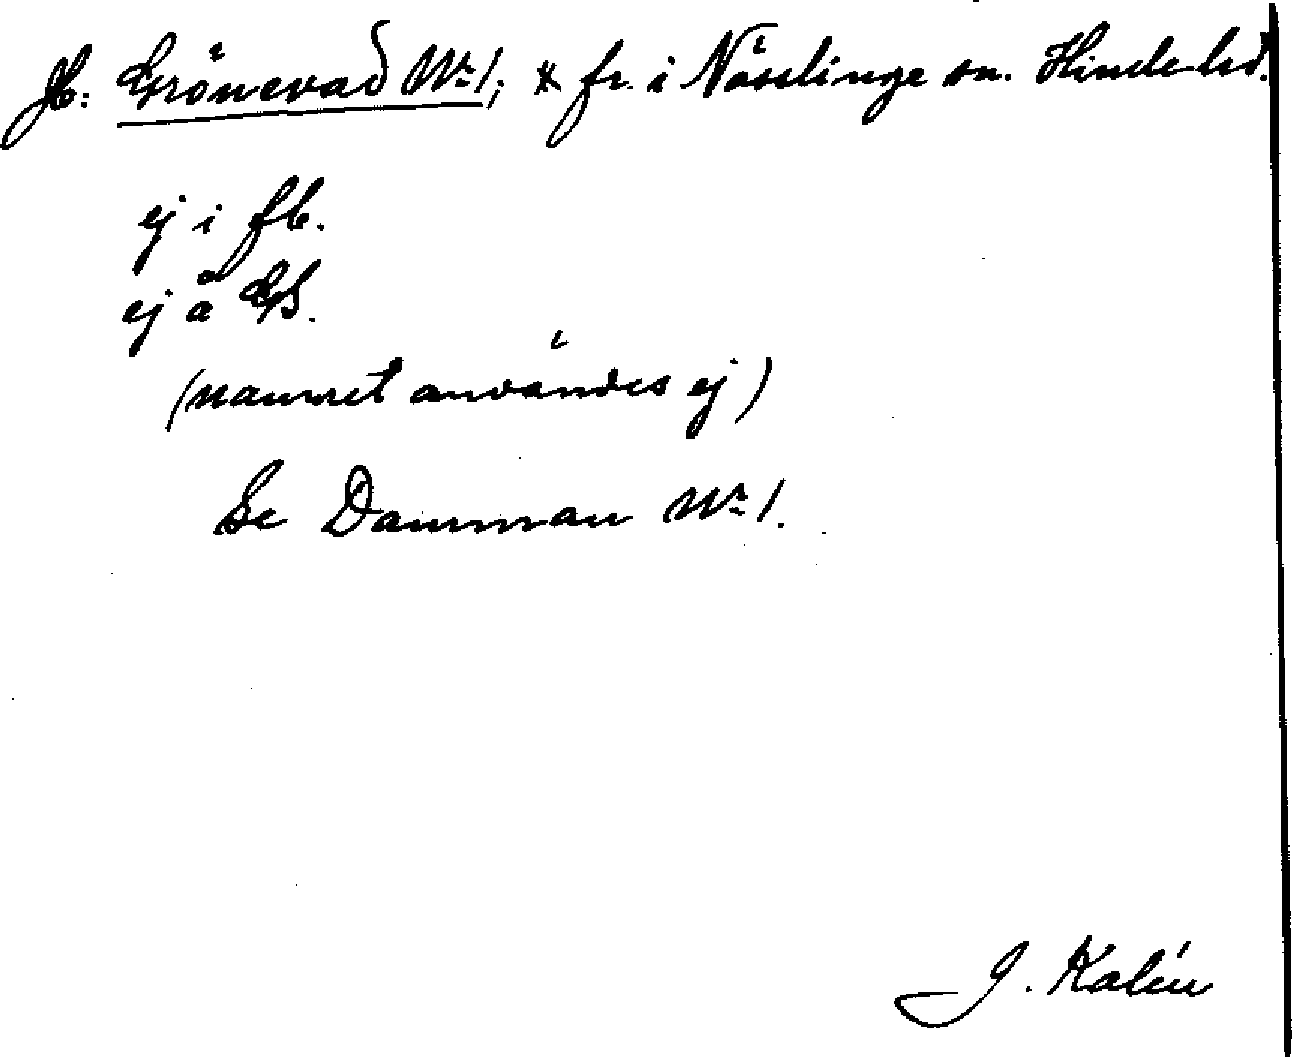 Jb: Grönevad № 1; * fr. i Nösslinge sn. Himle hd.
ej i fb.
ej å GS.
(namnet användes ej)
Se Damman № 1.
J. Kalén